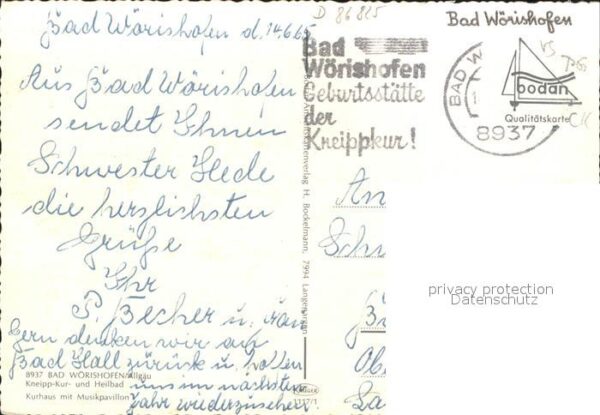 Bad Wörishofen d. 14.6.65
Aus Bad Wörishofen
sendet Ihnen
Schwester Hede
die herzlichsten
Grüße
Ihr
P. Becher u. Frau
Gern denken wir an
Bad Hall zurück u. hoffen
uns im nächsten
Jahr wiederzusehen
8937 BAD WÖRISHOFEN/Allgäu
Kneipp-Kur- und Heilbad
Kurhaus mit Musikpavillon
Ansichtskartenverlag H. Bockelmann, 7994 Langenargen
KRÜGER
1117/1
D 86825
Bad
Wörishofen
Geburtsstätte
der
Kneippkur!
BAD W
8937
Bad Wörishofen
bodan
Qualitätskarte
An
Schw
Ob
privacy protection
Datenschutz